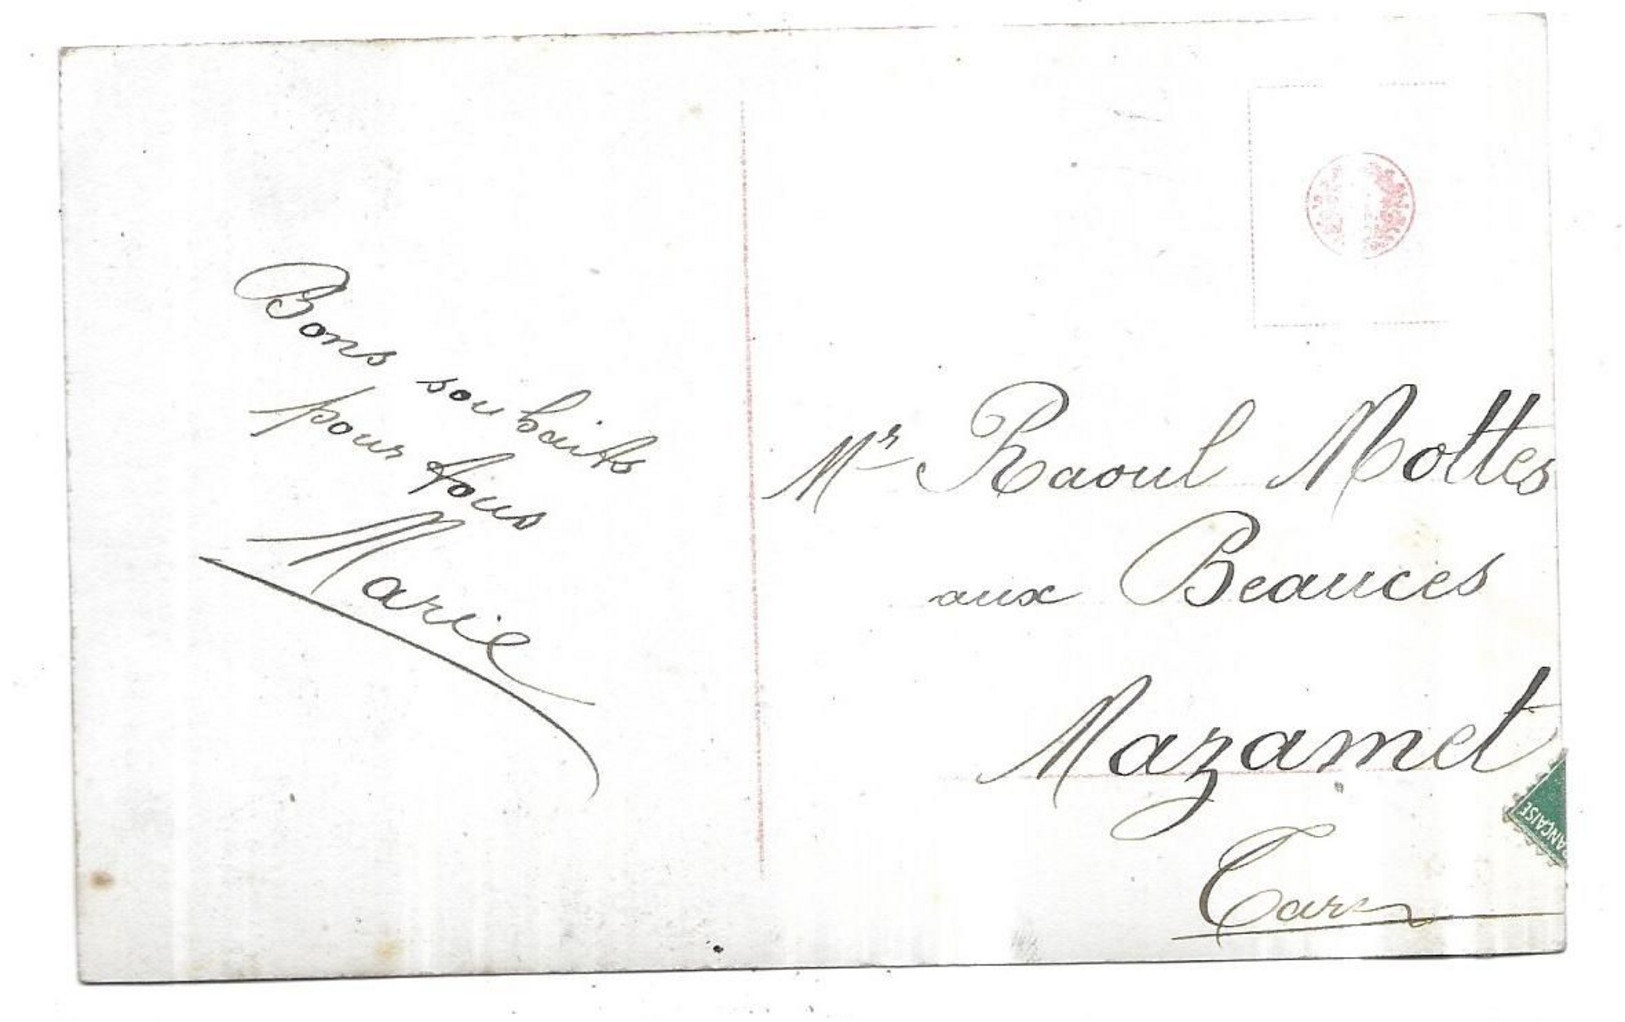 Bons souhaits
pour tous
Marie
Mr Raoul Mottes
aux Beauces
Mazamet
Tarn
ANÇAISE